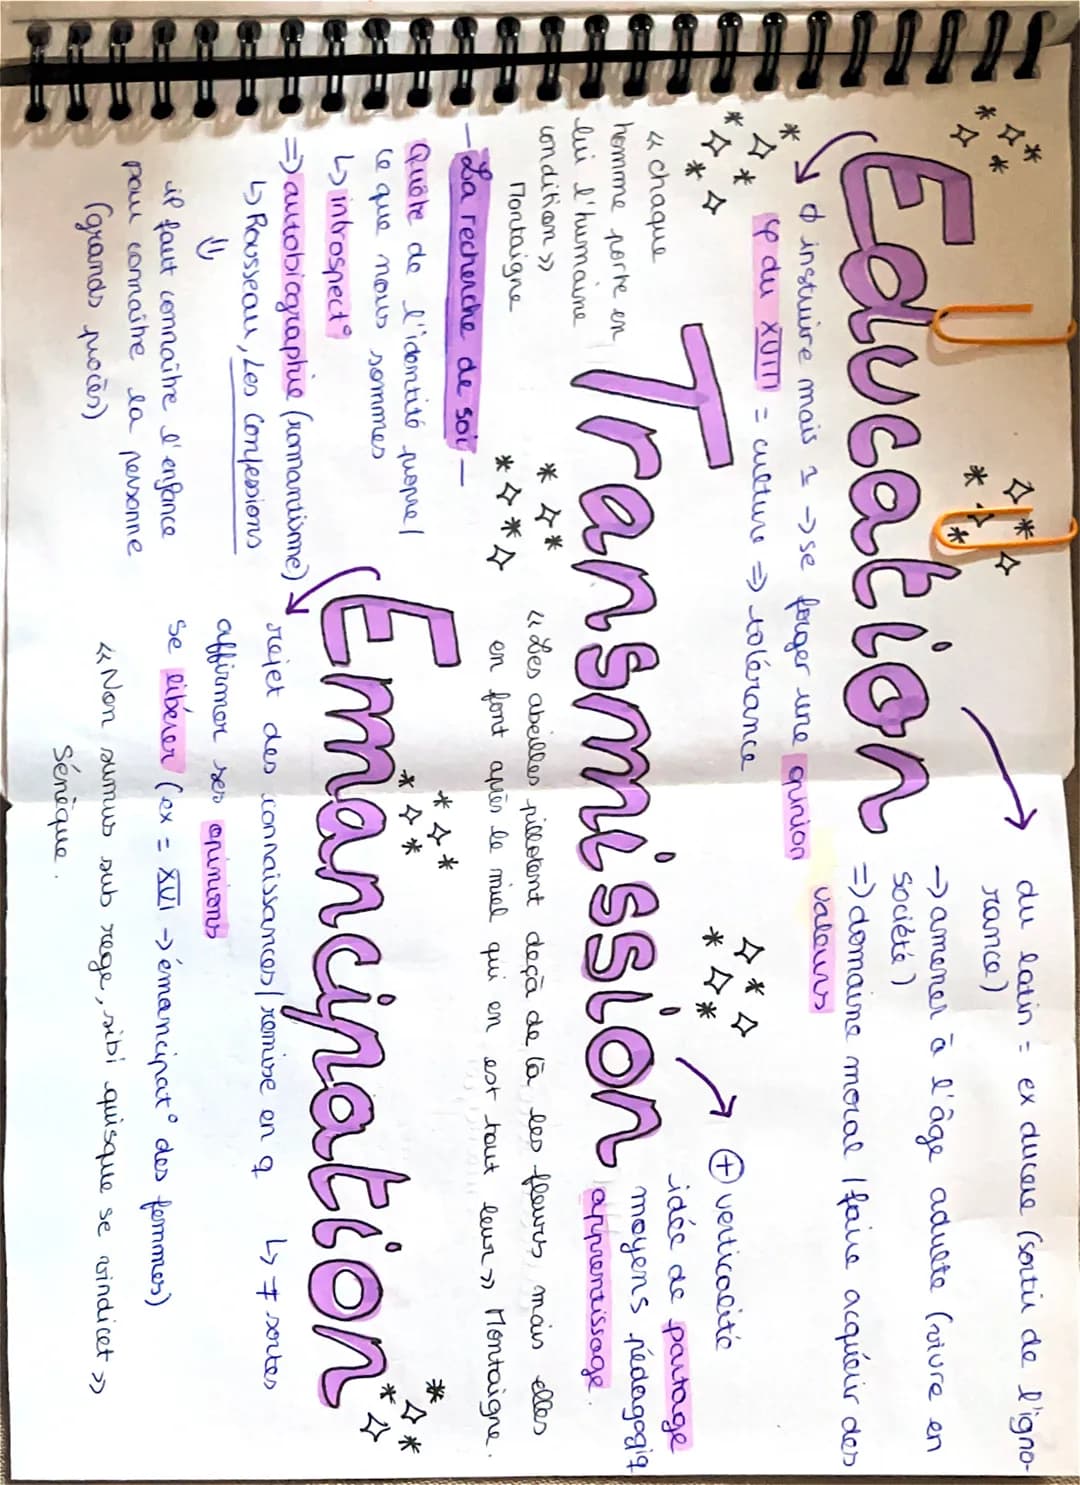 Education
du latin = ex ducere (sortir de l'igno-
rance)
-> amener à l'âge adulte (vivre en
société)
=> domaine moral / faire acquérir des
valeurs
instruire mais 1 -> se forger une opinion
φ du XVIII = culture => tolérance
« chaque
homme porte en
lui l'humaine
condition »
Montaigne
Transmission
⊕ verticalité
idée de partage
moyens pédagogiq
apprentissage.
« Les abeilles pillotent deçà de là les fleurs, mais elles
en font après le miel qui en est tout leur » Montaigne.
- La recherche de soi -
Quête de l'identité propre /
ce que nous sommes
↳ introspect°
=> autobiographie (romantisme)
↳ Rousseau, Les Confessions
⇓
il faut connaître l'enfance
pour connaître la personne
(grands procès)
Emancipation
rejet des connaissances / remise en q
↳ ≠ sortes
affirmer ses opinions
se libérer (ex = XVI -> émancipat° des femmes)
« Non sumus sub rege, sibi quisque se vindicet »
Sénèque.